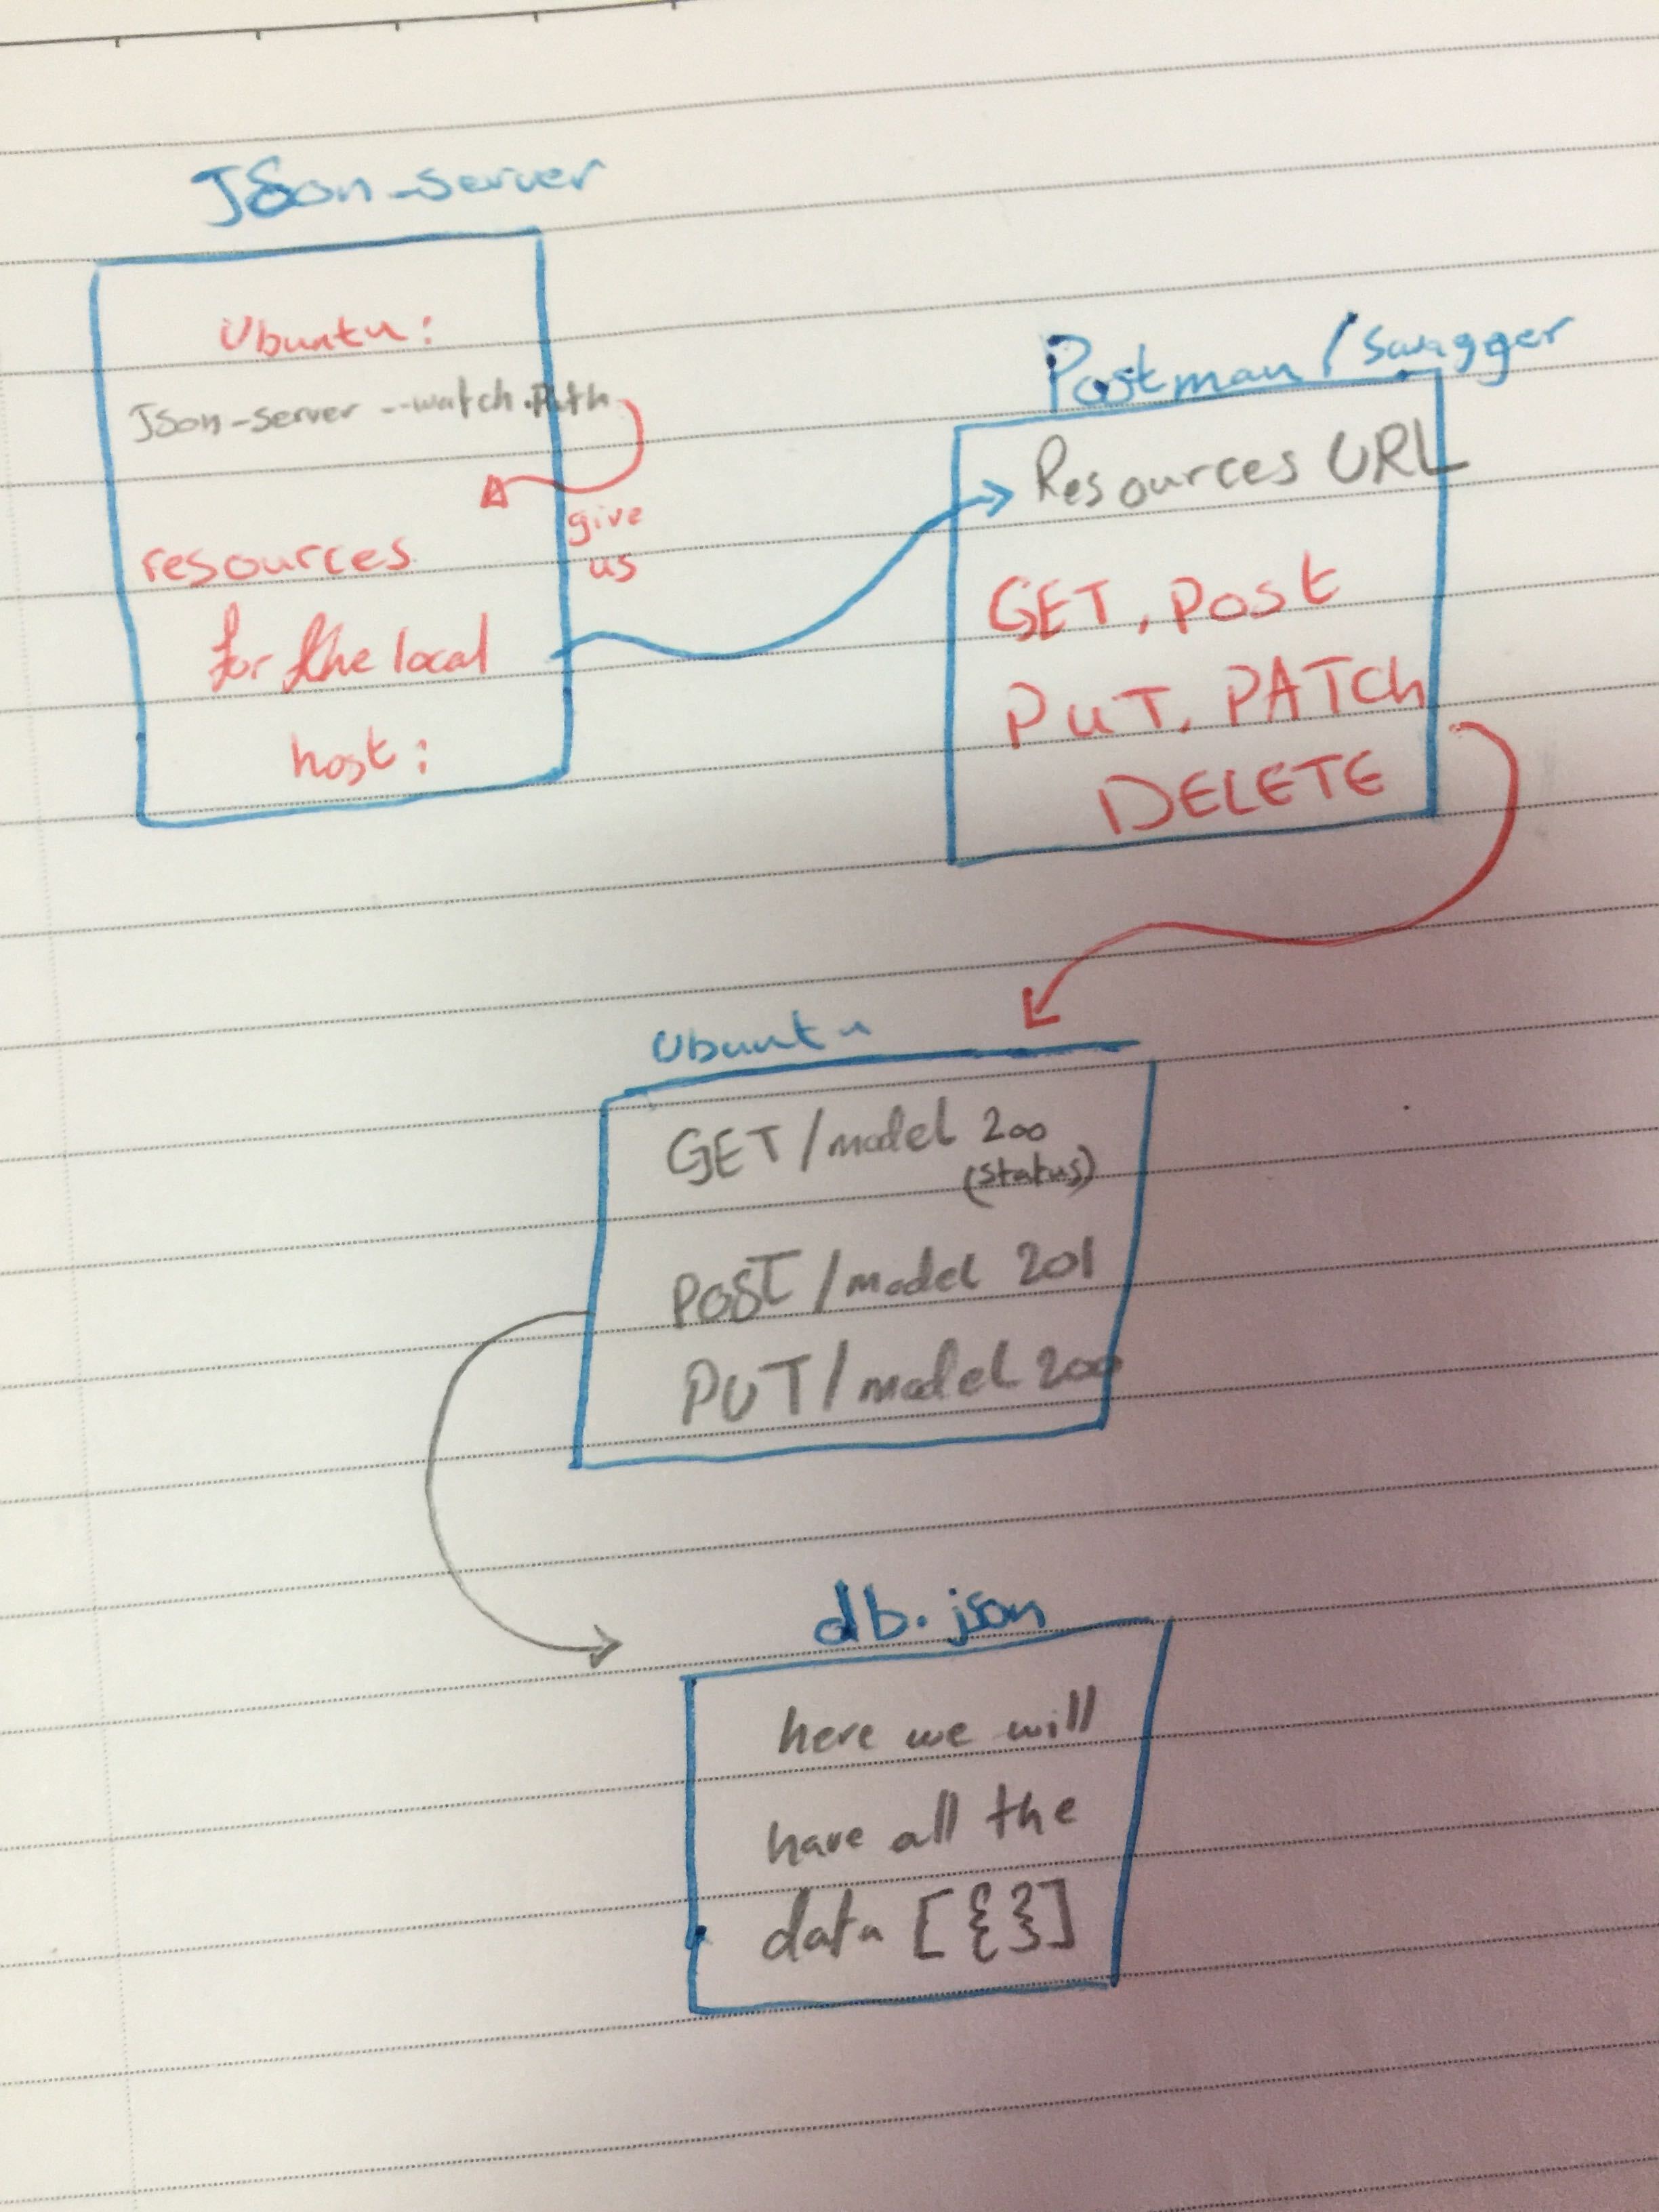 JSon-server
Ubuntu:
JSon-server --watch .Path
give
us
resources
for the local
host:
Postman / Swagger
Resources URL
GET, Post
PUT, PATCh
DELETE
Ubuntu
GET / model 200
(status)
POST / model 201
PUT / model 200
db.json
here we will
have all the
data [{}]